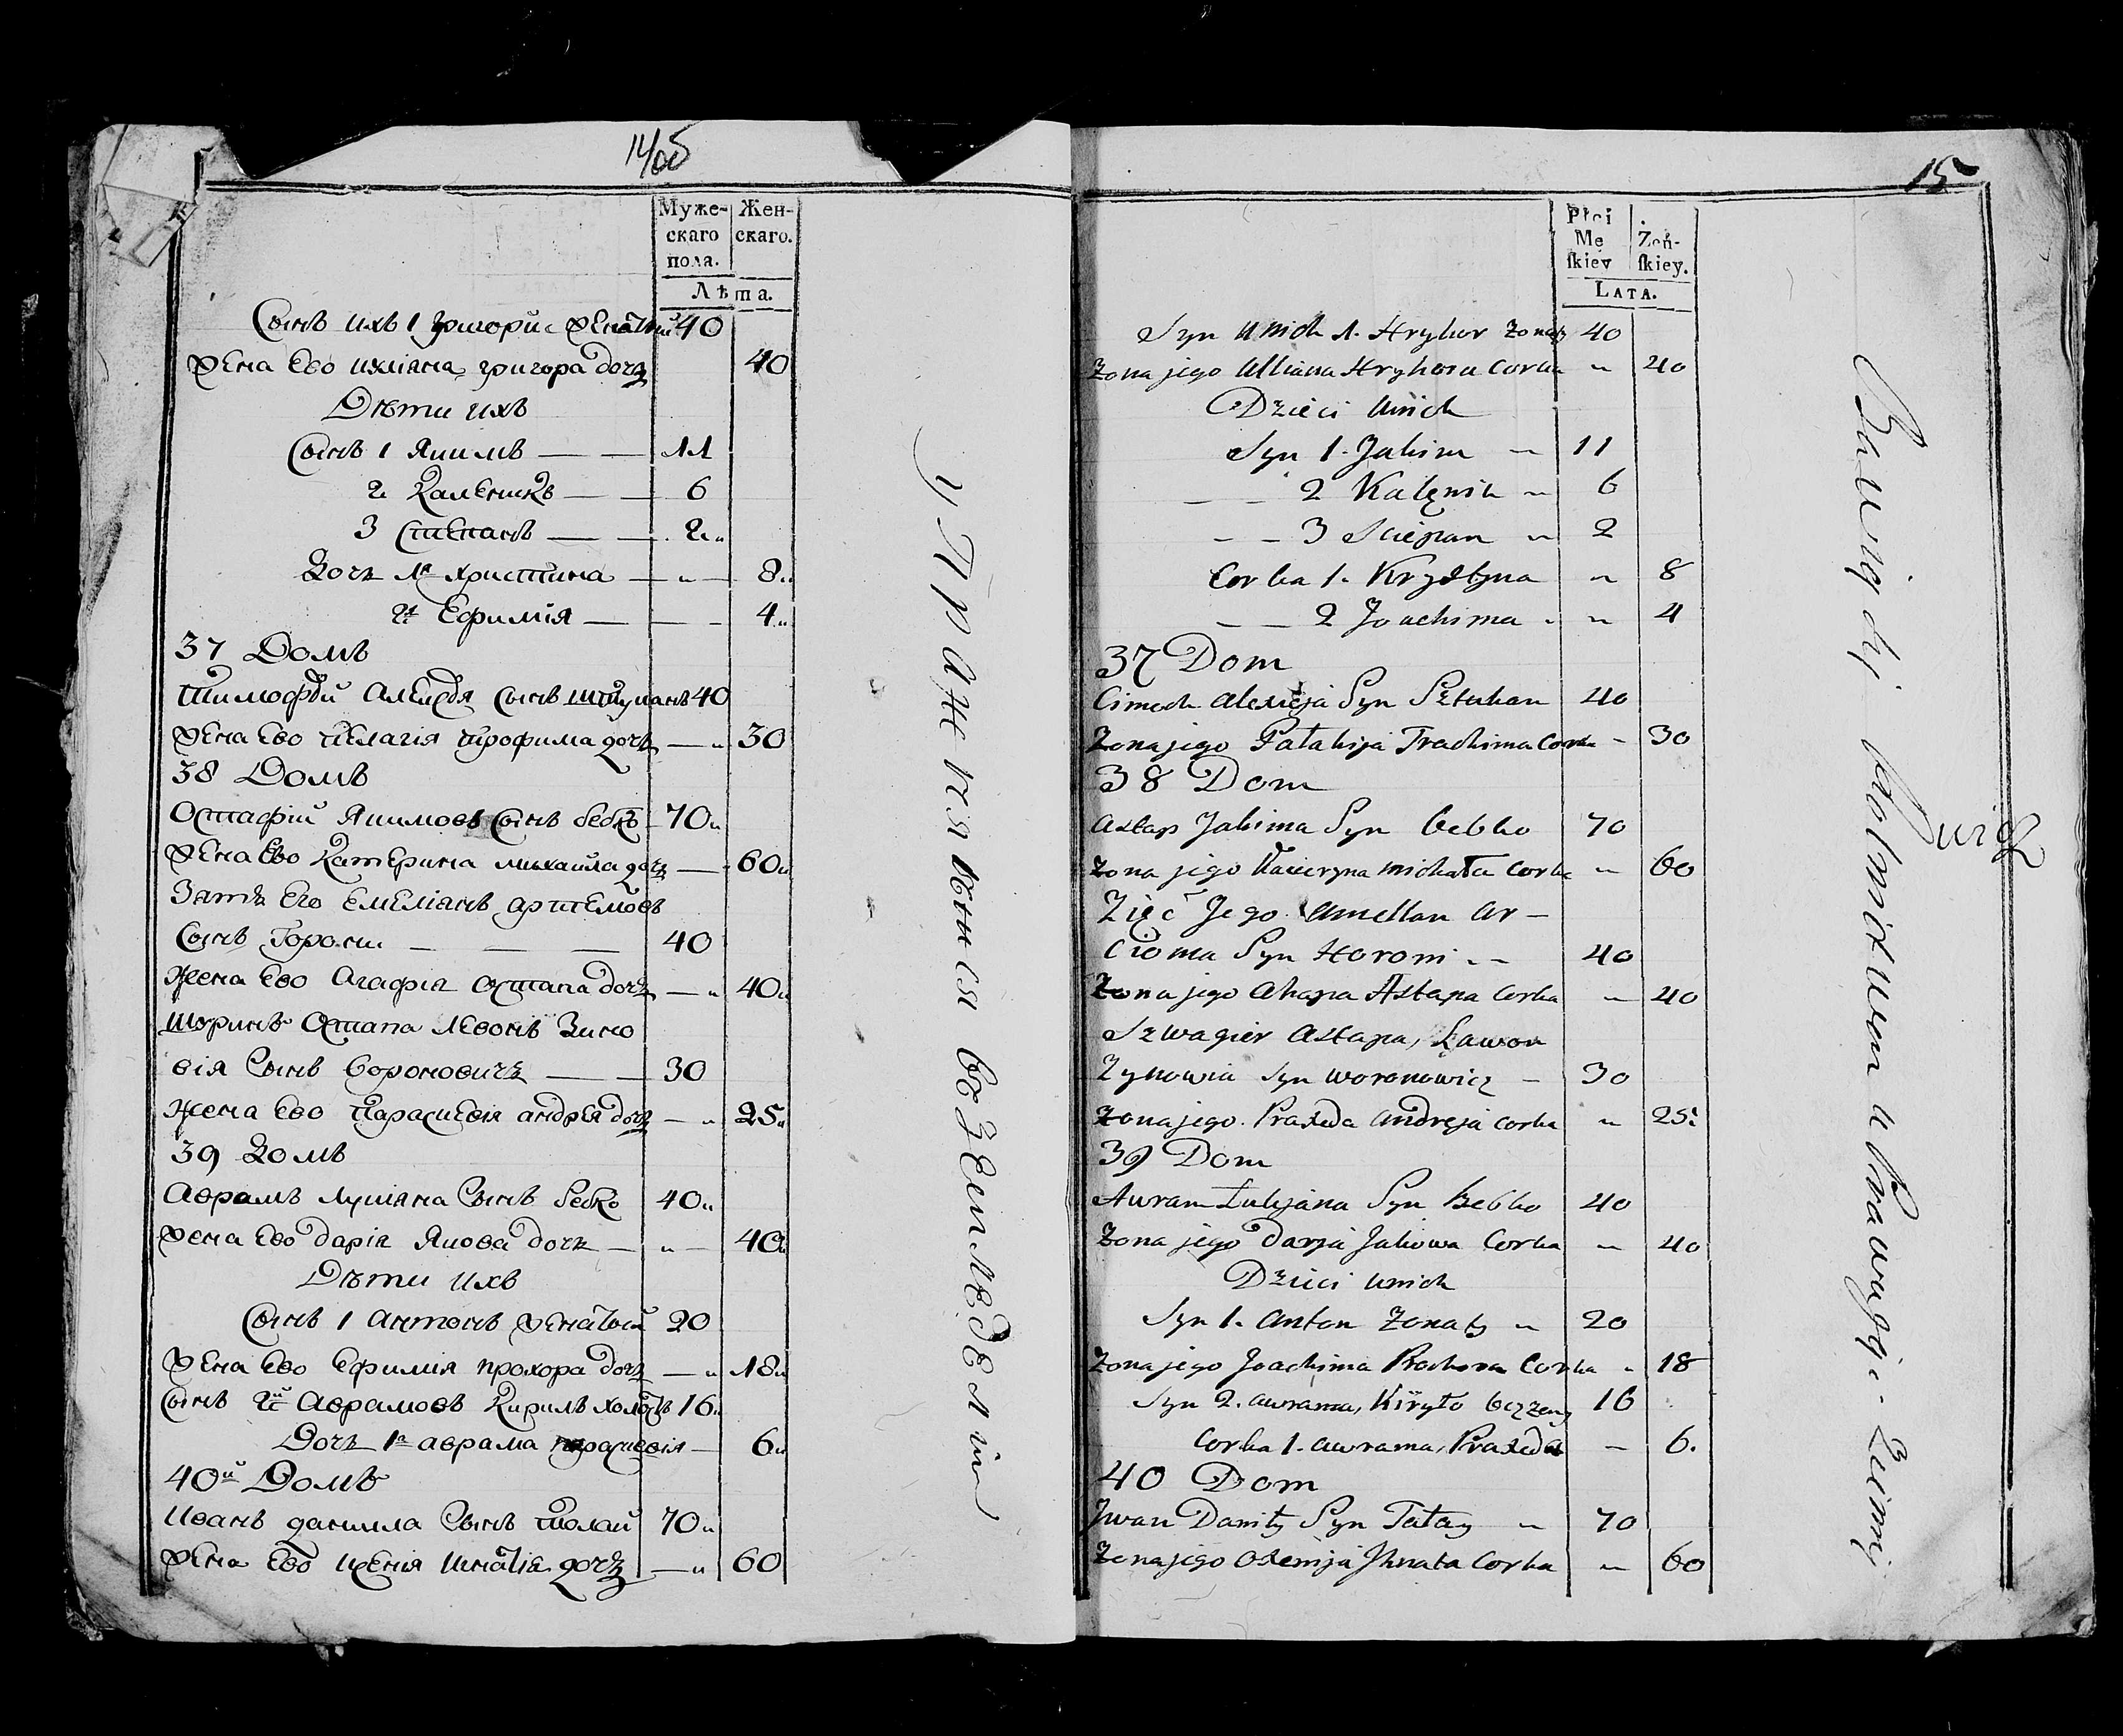 14
15
Муже-
скаго
пола.
Жен-
скаго.
Лѣта.
Сынъ ихъ 1 Григори женатый 40
жена ево Иулiяна григора дочь 40
Дѣти ихъ
Сынъ 1 Якимъ — — 11
2 Каленикъ — — 6
3 Степанъ — — 2
Дочь 1я христина — „ — 8
2я Ефимiя — — — 4
37 Домъ
Тимофѣй Алексѣя сынъ Штуканъ 40
жена ево Пелагiя Трофима дочь — „ 30
38 Домъ
Остафiй Якимовъ сынъ бебко 70
жена ево Катерина михайла дочь — 60
Зять его Емелiянъ артемовъ
сынъ Горони — — — 40
жена ево Агафiя Остапа дочь — „ 40
Шуринъ Остапа Левонъ Зино
вiя сынъ Вороновичь — — 30
жена ево Параскевiя андрея дочь — „ 25
39 Домъ
Аврамъ лукiяна сынъ бебко 40
жена ево дарiя Якова дочь — „ — 40
Дѣти ихъ
сынъ 1 антонъ женатый 20
жена ево Ефимiя прохора дочь — „ 18
сынъ 2й Аврамовъ Кирилъ холостъ 16
Дочь 1я аврама параскевiя — 6
40й Домъ
Иванъ данила сынъ 70
жена ево ксенiя Игнатiя дочь — „ 60
упражняются въ земледелiи
Płci
Mę
skiey
Zeń-
skiey.
LATA.
Syn unich 1. Hryhor Zonaty 40
Zona jego Ulliana Hryhora Corka „ 40
Dzieci unich
Syn 1. Jakim „ 11
— — 2 Kalęnik „ 6
— — 3 Sciepan „ 2
Corka 1. Krystyna „ 8
— — 2 Joachima „ „ 4
37 Dom
Cimoch alexieja Syn Sztukan 40
Zona jego Pałahija Trachima Corka - 30
38 Dom
astap Jakima Syn bebko 70
Zona jego Kacieryna michała Corka „ 60
Zięć Jego amellan ar-
cioma Syn Horoni „ - 40
Zona jego ahapa Astapa Corka „ 40
Szwagier astapa, Ławon
Zynowia Syn woronowicz - 30
Zona jego Praxeda andreja corka „ 25
39 Dom
Auram Łukjana Syn Bebko 40
Zona jego darja Jakowa Corka „ 40
Dzieci unich
Syn 1. anton Zonaty „ 20
Zona jego Joachima Prochora Corka „ 18
Syn 2. awrama, Kiryło bezzeny 16
Corka 1. awrama, Praxeda - 6.
40 Dom
Jwan Daniły Syn „ 70
Zona jego oxenija Jhnata Corka „ 60